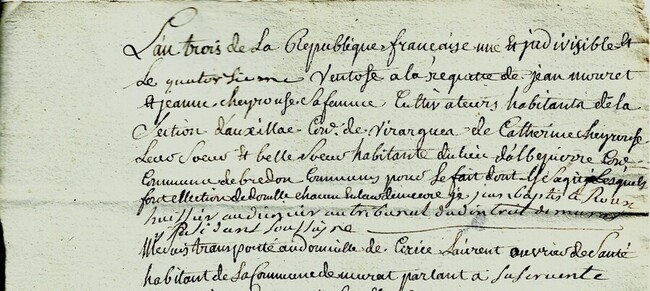 L'an trois de La Republique française une et indivisible et
Le quatorzieme Ventose a la requette de jean mourot
et jeanne cheyrouse sa femme Cultivateurs habitants de la
Section dauxillac Cne de Virargues de Catherine cheyrouse
Leur Soeur et belle Soeur habitante du lieu d'albepierre
Commune de bredon Communs pour le fait dont il Sagit Lesquels
font ellection de domille chacun en La demeure je jean baptiste Roux
huissier audiancier au tribunal du district de murat
y Residant Soussigné
Me suis transporté au domicille de Laurent de Santé
habitant de La Commune de murat parlant a Sa Servente